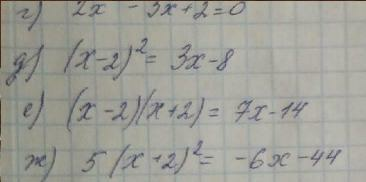 г) 2x - 3x+2=0
д) (x-2)²= 3x-8
е) (x-2)(x+2)= 7x-14
ж) 5(x+2)²= -6x-44